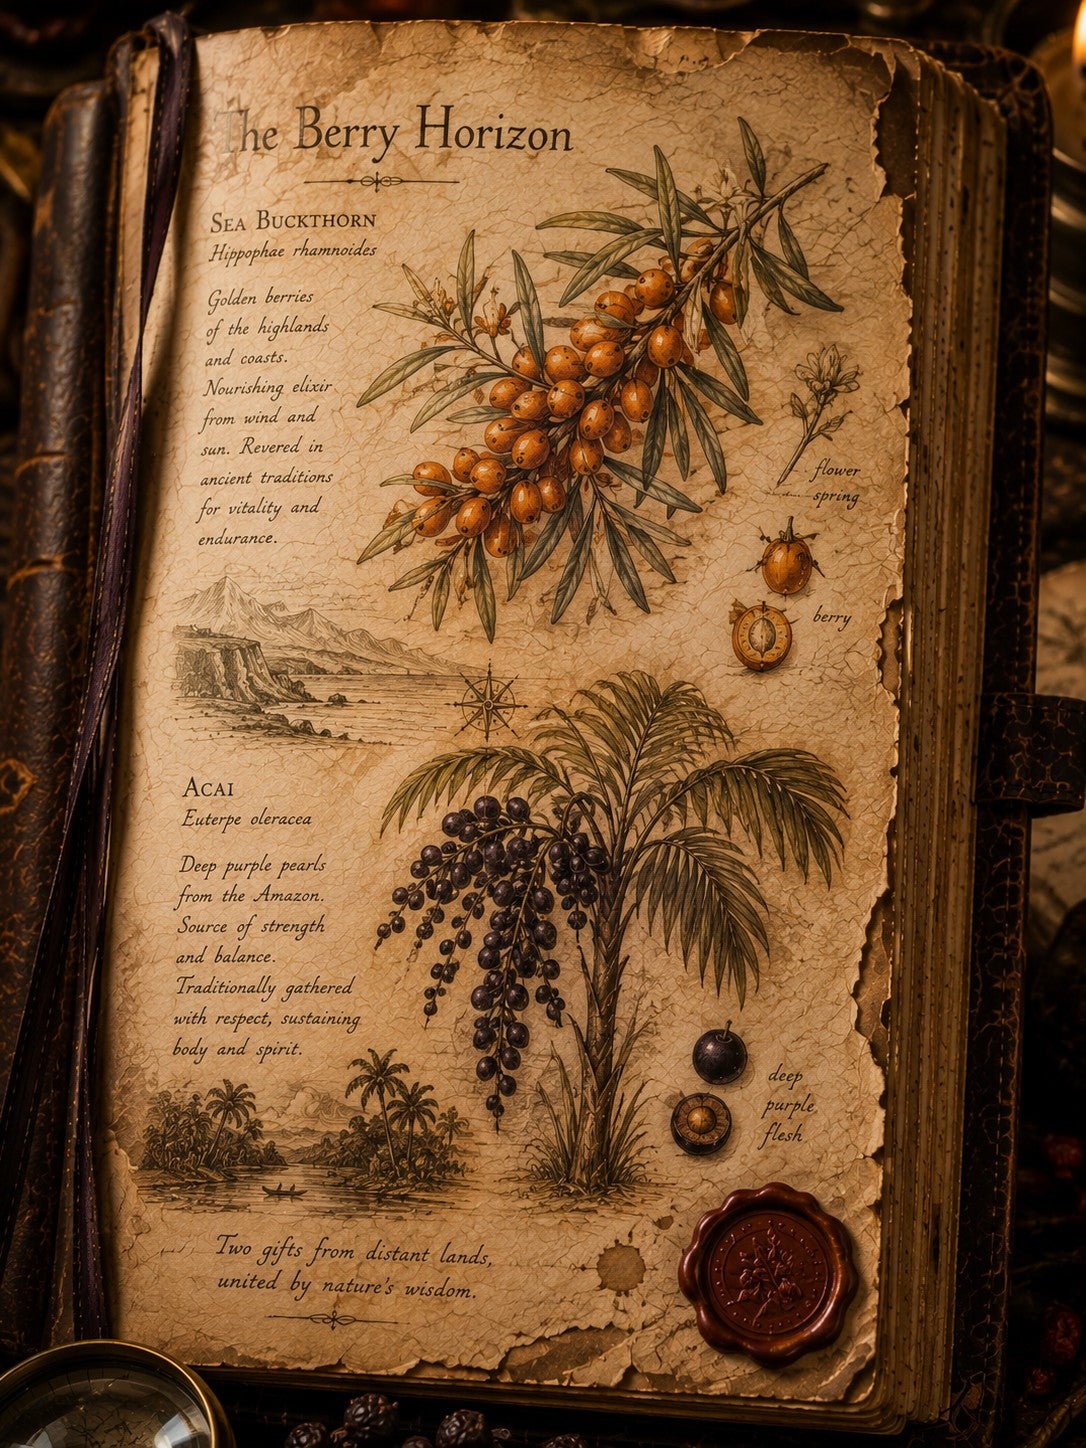 The Berry Horizon
SEA BUCKTHORN
Hippophae rhamnoides
Golden berries
of the highlands
and coasts.
Nourishing elixir
from wind and
sun. Revered in
ancient traditions
for vitality and
endurance.
flower
spring
berry
ACAI
Euterpe oleracea
Deep purple pearls
from the Amazon.
Source of strength
and balance.
Traditionally gathered
with respect, sustaining
body and spirit.
deep
purple
flesh
Two gifts from distant lands,
united by nature's wisdom.